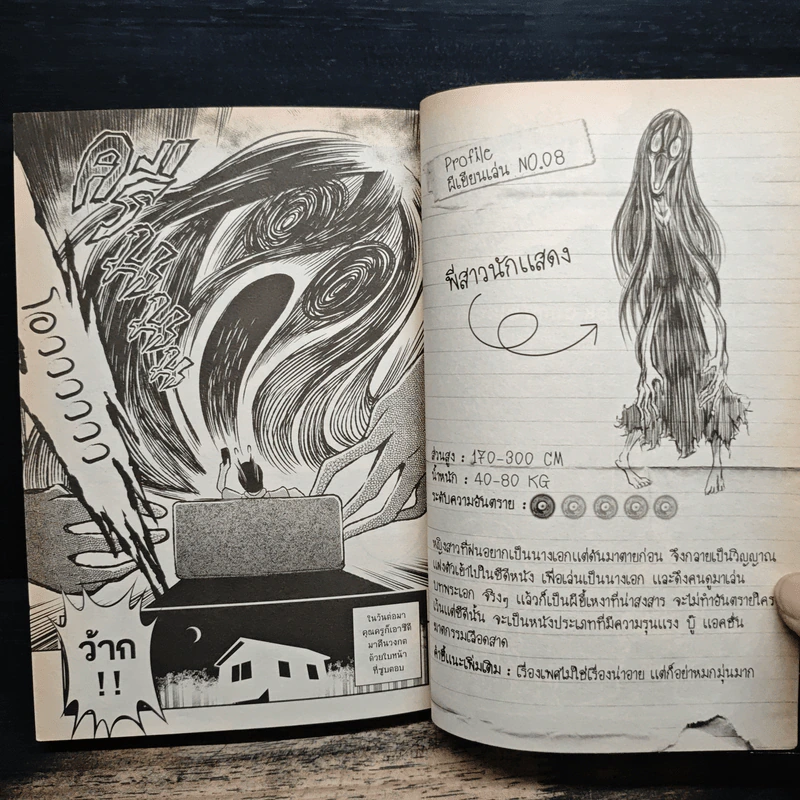 โอวววววววว
ว้าก
!!
ในวันต่อมา
คุณครูก็เอาซีดี
มาคืนวงกต
ด้วยใบหน้า
ที่ซูบตอบ
Profile
ผีเฮี้ยนเล่น NO.08
พี่สาวนักแสดง
ส่วนสูง : 170-300 CM
น้ำหนัก : 40-80 KG
ระดับความอันตราย :
หญิงสาวที่ฝันอยากเป็นนางเอกแต่ดันมาตายก่อน จึงกลายเป็นวิญญาณ
แฝงตัวเข้าไปในซีดีหนัง เพื่อเล่นเป็นนางเอก และดึงคนดูมาเล่น
บทพระเอก จริงๆ แล้วก็เป็นผีขี้เหงาที่น่าสงสาร จะไม่ทำอันตรายใคร
เว้นแต่ซีดีนั้น จะเป็นหนังประเภทที่มีความรุนแรง บู๊ แอคชั่น
ฆาตกรรมเลือดสาด
คำชี้แนะเพิ่มเติม : เรื่องเพศไม่ใช่เรื่องน่าอาย แต่ก็อย่าหมกมุ่นมาก